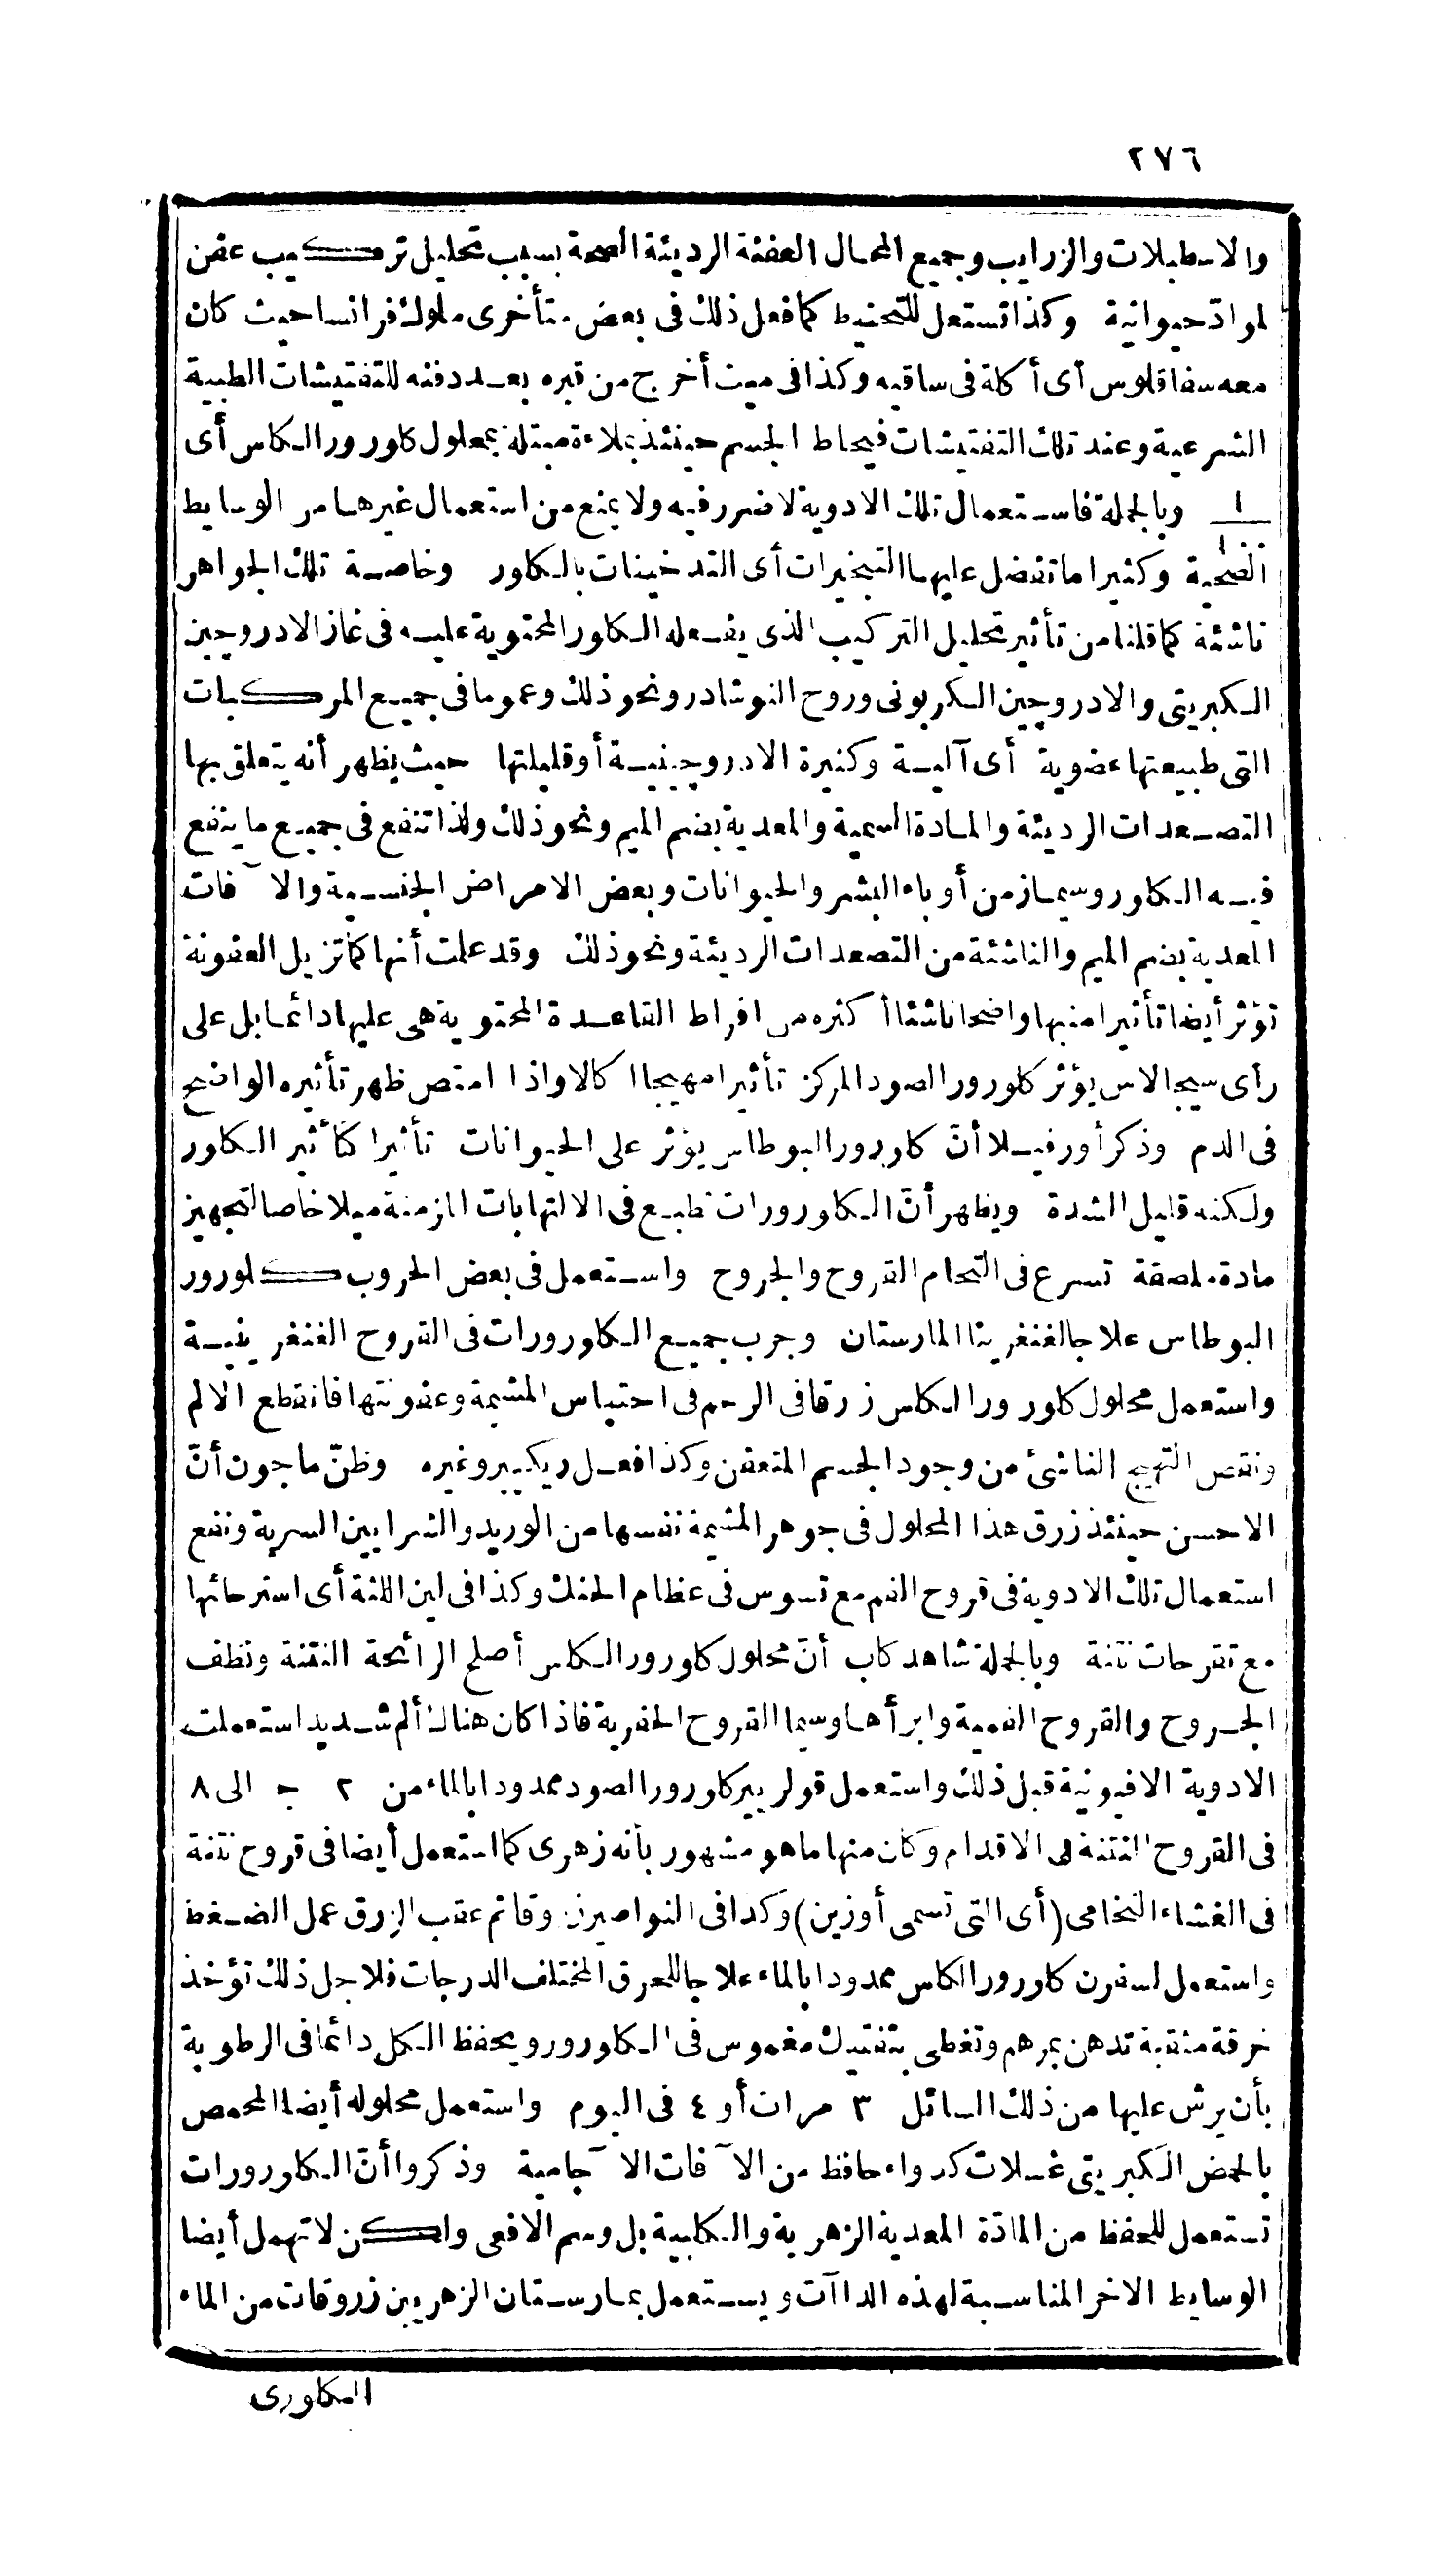 ٢٧٦
والاسطبلات والزرايب وجميع المحال العفنة الرديئة الصحة بسبب تحليل تركيب عفن
لموادّ حيوانية وكذا تستعمل للتحنيط كما فعل ذلك فى بعض متأخرى ملوك فرانسا حيث كان
معه سفاقلوس أى أكلة فى ساقيه وكذا فى ميت أخرج من قبره بعد دفنه للتفتيشات الطبية
الشرعية وعند تلك التفتيشات فيحاط الجسم حينئذ بملاءة مبتلة بمحلول كلورور الكلس أى
١/١٠٠ وبالجملة فاستعمال تلك الادوية لا ضرر فيه ولا يمنع من استعمال غيرها من الوسايط
الصحية وكثيرا ما تفضل عليها التبخيرات أى التدخينات بالكلور وخاصة تلك الجواهر
ناشئة كما قلنا من تأثير تحليل التركيب الذى يفعله الكلور المحتوية عليه فى غاز الادروجين
الكبريتى والادروجين الكربونى وروح النوشادر ونحو ذلك وعموما فى جميع المركبات
التى طبيعتها عضوية أى آلية وكثيرة الادروجينية أو قليلتها حيث يظهر أنه يتعلق بها
التصعدات الرديئة والمادة السمية والمعدية بضم الميم ونحو ذلك ولذا تنفع فى جميع ما ينفع
فيه الكلور وسيما زمن أوباء البشر والحيوانات وبعض الامراض الجنسية والآفات
المعدية بضم الميم والناشئة من التصعدات الرديئة ونحو ذلك وقد علمت أنها كما تزيل العفونة
تؤثر أيضا تأثيرا منبها واضحا ناشئا أكثره من افراط القاعدة المحتوية هى عليها دائما بل على
رأى سيجالاس يؤثر كلورور الصود المركز تأثيرا مهيجا أكالا واذا امتص ظهر تأثيره الواضح
فى الدم وذكر أورفيلا أنّ كلورور البوطاس يؤثر على الحيوانات تأثيرا كتأثير الكلور
ولكنه قليل الشدة ويظهر أنّ الكلورورات تطبع فى الالتهابات المزمنة ميلا خاصا لتجهيز
مادة ملصقة تسرع فى التحام القروح والجروح واستعمل فى بعض الحروب كلورور
البوطاس علاجا لغنغرينا المارستان وجرب جميع الكلورورات فى القروح الغنغرينية
واستعمل محلول كلورور الكلس زرقا فى الرحم فى احتباس المشيمة وعفونتها فانقطع الالم
ونقص التهيج الناشئ من وجود الجسم المتعفن وكذا فعل ريكيير وغيره وظنّ ماجون أنّ
الاحسن حينئذ زرق هذا المحلول فى جوهر المشيمة نفسها من الوريد والشرايين السرية ونفع
استعمال تلك الادوية فى قروح الفم مع تسوس فى عظام الحنك وكذا فى لين اللثة أى استرخائها
مع تقرحات نتنة وبالجملة شاهد كلب أنّ محلول كلورور الكلس أصلح الرائحة النتنة ونظف
الجروح والقروح الفمية وابرأها وسيما القروح الحفرية فاذا كان هناك ألم شديد استعملت
الادوية الافيونية قبل ذلك واستعمل قولريير كلورور الصود ممدودا بالماء من ٢ جـ الى ٨
فى القروح النتنة فى الاقدام وكان منها ما هو مشهور بأنه زهرى كما استعمل أيضا فى قروح نتنة
فى الغشاء النخامى (أى التى تسمى أوزين) وكذا فى النواصير وقاتم عقب الزرق عمل الضغط
واستعمل لسفرن كلورور الكلس ممدودا بالماء علاجا للحرق المختلف الدرجات فلاجل ذلك تؤخذ
خرقة مثقبة تدهن بمرهم وتغطى بتفتيك مغموس فى الكلورور ويحفظ الكل دائما فى الرطوبة
بأن يرش عليها من ذلك السائل ٣ مرات أو ٤ فى اليوم واستعمل محلوله أيضا المحمص
بالحمض الكبريتى غسلات كدواء حافظ من الآفات الآجامية وذكروا أنّ الكلورورات
تستعمل للحفظ من المادّة المعدية الزهرية والكلبية بل وسم الافعى ولكن لا تهمل أيضا
الوسايط الاخر المناسبة لهذه الداآت ويستعمل بمارستان الزهريين زروقات من الماء
الكلورى